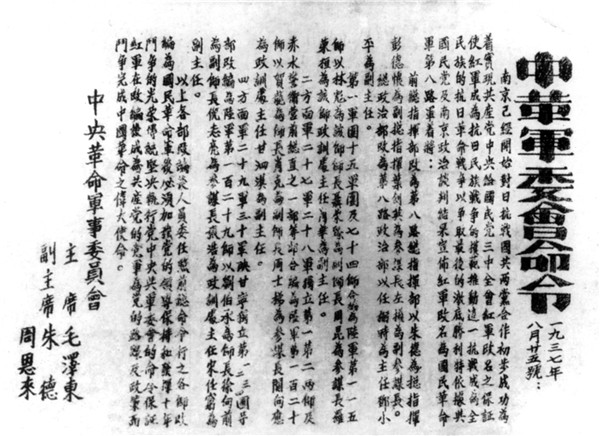 中華軍委會命令
一九三七年
八月廿五號：
南京已經開始對日抗戰國共兩黨合作初步成功為
着實現共產黨中央給國民黨三中全會紅軍改名之保証
使紅軍成為抗日民族戰爭的模範推動這一抗戰成為全
民族的抗日革命戰爭以爭取最後的澈底勝利特依據與
國民黨及南京政治談判結果宣佈紅軍改名為國民革命
軍第八路軍着將：
前總指揮部改為第八路總指揮部以朱德為總指揮
彭德懷為副總指揮葉劍英為參謀長左權為副參謀長。
總政治部改為第八路政治部以任弼時為主任鄧小
平為副主任。
第一軍團十五軍團及七十四師合編為陸軍第一一五
師以林彪為該師師長聶榮臻為副師長周昆為參謀長羅
榮桓為該師政訓處主任肖華為副主任。
二方面軍二十七軍二十八軍獨立第一第二兩師及
赤水警衛營前總直之一部等部合編為陸軍第一百二十
師以賀龍為師長肖克為副師長周士梯為參謀長關向應
為政訓處主任甘泗淇為副主任。
四方面軍二十九軍三十軍陝甘寧獨立第一二三四團等
部改編為陸軍第一百二十九師以劉伯承為師長徐向前
為副師長倪志亮為參謀長張浩為政訓處主任宋任窮為
副主任。
以上各部改編後人員委任照前總命令行之各部改
編為國民革命軍後必須加強黨的領導保持和發揮十年
鬥爭的光榮傳統堅決執行黨中央與軍委會的命令保證
紅軍在改編後成為共產黨的黨軍為黨的路線及政策而
鬥爭完成中國革命之偉大使命。
中央革命軍事委員會
主席毛澤東
副主席朱德
周恩來